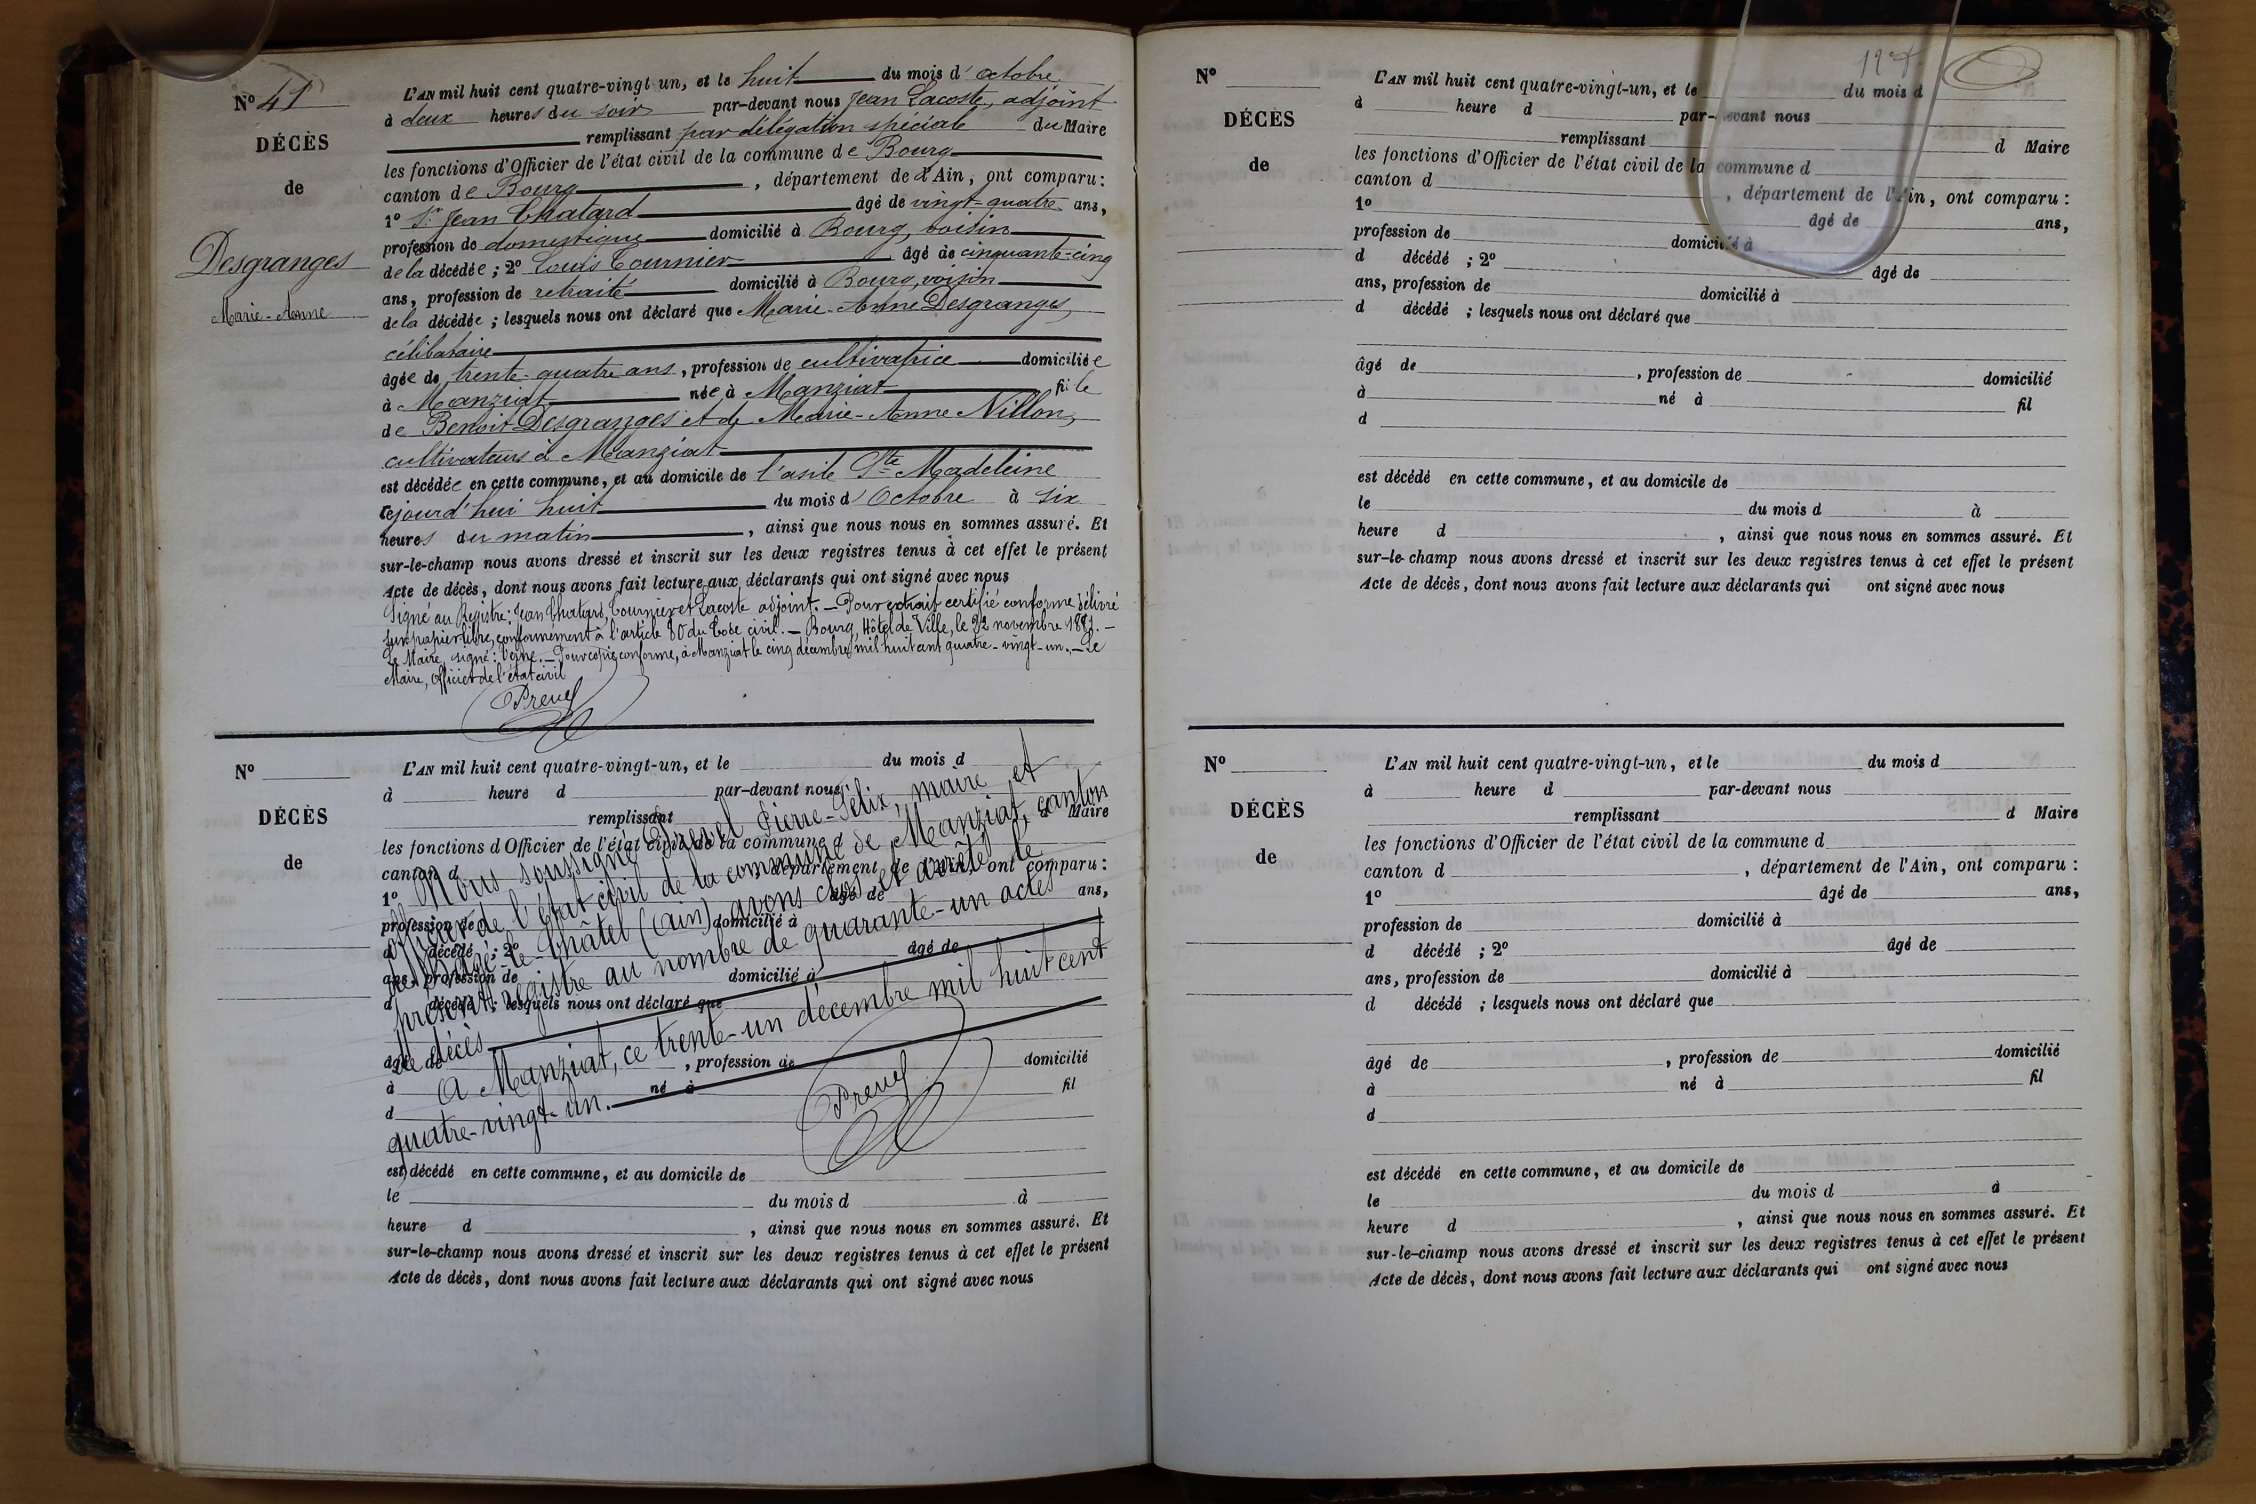 N° 41
DÉCÈS
de
Desgranges
Marie-Anne
L'AN mil huit cent quatre-vingt-un, et le huit du mois d'octobre
à deux heures du soir par-devant nous Jean Lacoste, adjoint
remplissant par délégation spéciale du Maire
les fonctions d'Officier de l'état civil de la commune de Bourg
canton de Bourg, département de l'Ain, ont comparu :
1° Sr Jean Chatard âgé de vingt-quatre ans,
profession de domestique domicilié à Bourg, voisin
de la décédée ; 2° Louis Tournier âgé de cinquante-cinq
ans, profession de retraité domicilié à Bourg, voisin
de la décédée ; lesquels nous ont déclaré que Marie-Anne Desgranges,
célibataire
âgée de trente-quatre ans, profession de cultivatrice domiciliée
à Manziat née à Manziat fille
de Benoit Desgranges et de Marie-Anne Nillon,
cultivateurs à Manziat
est décédée en cette commune, et au domicile de l'asile Ste Madeleine
cejourd'hui huit du mois d'Octobre à six
heures du matin, ainsi que nous nous en sommes assuré. Et
sur-le-champ nous avons dressé et inscrit sur les deux registres tenus à cet effet le présent
Acte de décès, dont nous avons fait lecture aux déclarants qui ont signé avec nous
Signé au Registre : Jean Chatard, Tournier et Lacoste adjoint. — Pour extrait certifié conforme délivré
sur papier libre, conformément à l'article 80 du Code civil. — Bourg, Hôtel de Ville, le 22 novembre 1881. —
Le Maire, signé : — Pour copie conforme, à Manziat le cinq décembre mil huit cent quatre-vingt-un. — Le
Maire, Officier de l'état civil
Prevel
N°
DÉCÈS
de
L'AN mil huit cent quatre-vingt-un, et le du mois d
à heure d par-devant nous
remplissant d Maire
les fonctions d'Officier de l'état civil de la commune d
canton d département de l'Ain, ont comparu :
1° âgé de ans,
profession de domicilié à
d décédé ; 2° âgé de
ans, profession de domicilié à
d décédé ; lesquels nous ont déclaré que
âgé de , profession de domicilié
à né à fil
d
est décédé en cette commune, et au domicile de
le du mois d à
heure d , ainsi que nous nous en sommes assuré. Et
sur-le-champ nous avons dressé et inscrit sur les deux registres tenus à cet effet le présent
Acte de décès, dont nous avons fait lecture aux déclarants qui ont signé avec nous
Nous soussigné Prevel Pierre-Félix, maire et
officier de l'état civil de la commune de Manziat, canton
de Bâgé-le-Châtel (Ain) avons clos et arrêté le
présent registre au nombre de quarante-un actes
de décès
A Manziat, ce trente-un décembre mil huit cent
quatre-vingt-un.
Prevel
N°
DÉCÈS
de
L'AN mil huit cent quatre-vingt-un, et le du mois d
à heure d par-devant nous
remplissant d Maire
les fonctions d'Officier de l'état civil de la commune d
canton d , département de l'Ain, ont comparu :
1° âgé de ans,
profession de domicilié à
d décédé ; 2° âgé de
ans, profession de domicilié à
d décédé ; lesquels nous ont déclaré que
âgé de , profession de domicilié
à né à fil
d
est décédé en cette commune, et au domicile de
le du mois d à
heure d , ainsi que nous nous en sommes assuré. Et
sur-le-champ nous avons dressé et inscrit sur les deux registres tenus à cet effet le présent
Acte de décès, dont nous avons fait lecture aux déclarants qui ont signé avec nous
N°
DÉCÈS
de
L'AN mil huit cent quatre-vingt-un, et le du mois d
à heure d par-devant nous
remplissant d Maire
les fonctions d'Officier de l'état civil de la commune d
canton d , département de l'Ain, ont comparu :
1° âgé de ans,
profession de domicilié à
d décédé ; 2° âgé de
ans, profession de domicilié à
d décédé ; lesquels nous ont déclaré que
âgé de , profession de domicilié
à né à fil
d
est décédé en cette commune, et au domicile de
le du mois d à
heure d , ainsi que nous nous en sommes assuré. Et
sur-le-champ nous avons dressé et inscrit sur les deux registres tenus à cet effet le présent
Acte de décès, dont nous avons fait lecture aux déclarants qui ont signé avec nous